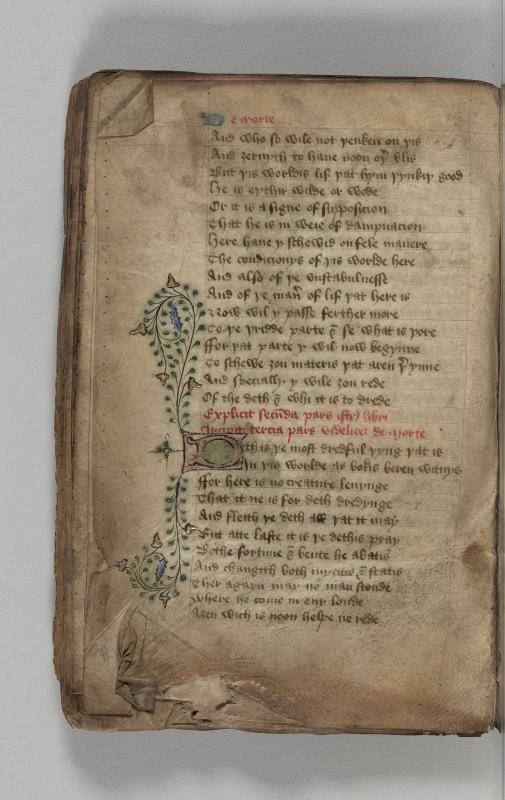 De morte
And who so wile not þenken on þis
And ȝernyth to haue noon oþ̉ blis
But þis worldis lif þat hym þynkiþ good
He is eythir wilde or wode
Or it is a signe of supposicion
That he is in weie of dampnacion
Here haue y schewid on fele manere
The condicionys of þis worlde here
And also of þe vnstabulnesse
And of þe man̄ of lif þat here is
Now wil y passe ferther more
To þe þridde parte & se what is þore
ffor þat parte y wil now begynne
To schewe ȝou materis þat aren þ̉ynne
And specially y wile ȝou rede
Of the deth & whi it is to drede
Explicit secūda pars istī libri
Incipit tercia pars videlicet de morte
Deth is þe most dredful þyng þat is
In þis worlde as bokis beren witnys
ffor here is no creature leuynge
That it ne is for deth dredynge
And fleith þe deth all þat it may
But atte laste it is þe dethis pray
Bothe fortune & beute he abatis
And changith both myȝtis & statis
Ther agayn may no man stonde
Where he come in eny londe
Aȝen wich is noon helpe ne rede